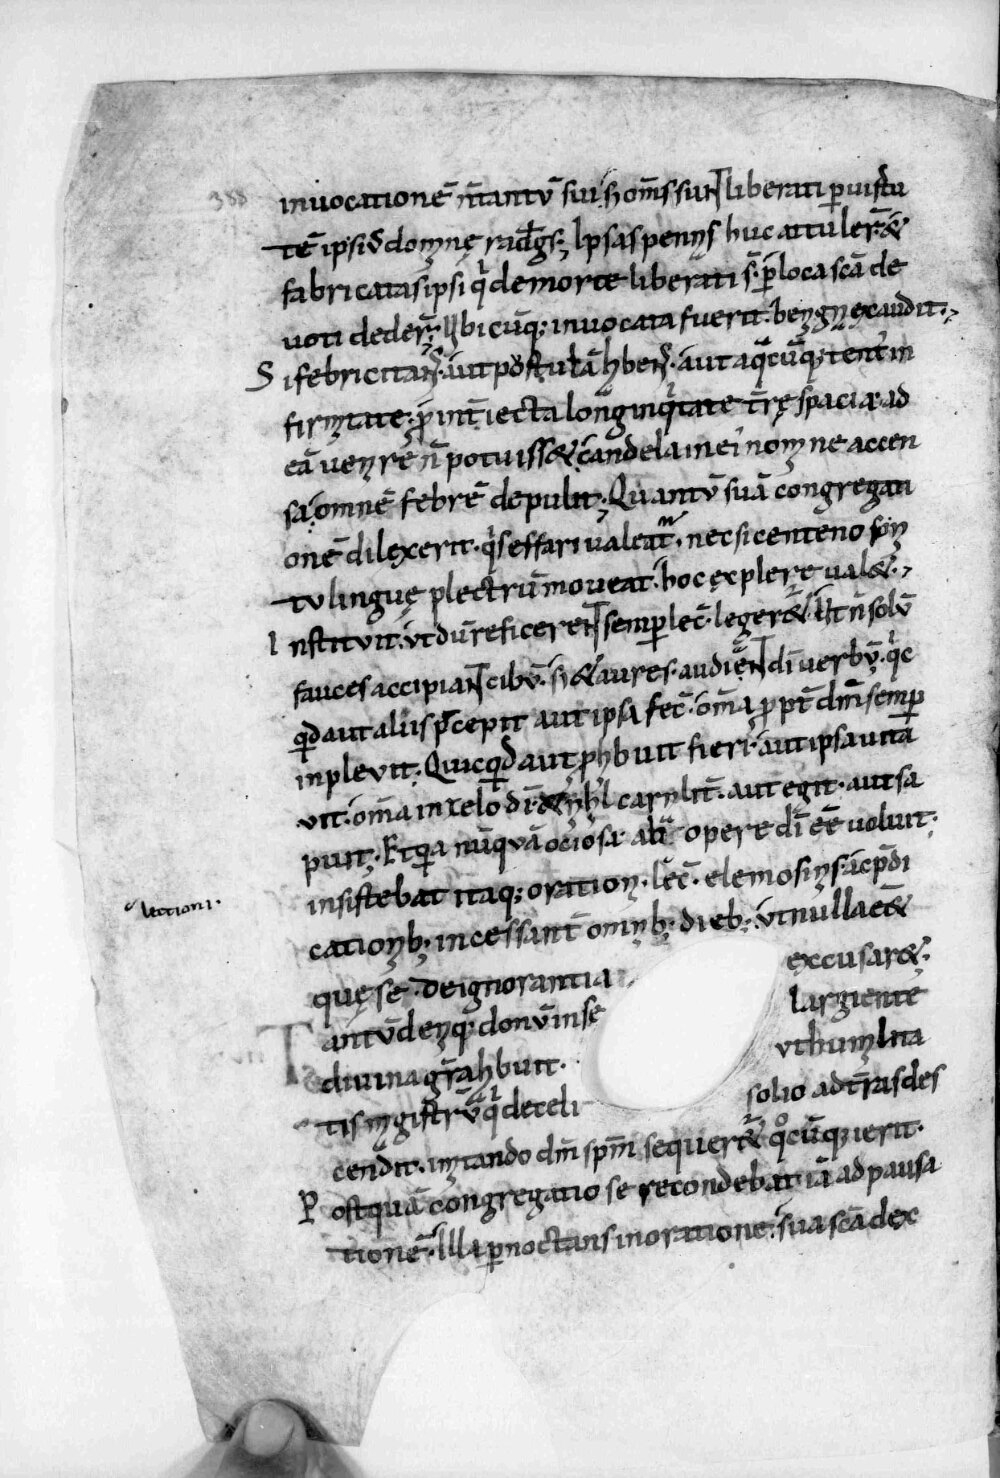 388
inuocationē n̄tantū sui. s; om̄s sunt liberati p uirtu
tē ipsiꝰ domnę radg̃s. Ipsas penns huc attuler̄ &
fabricatas ipsi q̇ demorte liberati s̄. p loca sc̄a de
uoti deder̄. Ubicūq; inuocata fuerit. benign exaudit.
Si febricitan̄s. aut postulā hben̄s. aut aq̄cūq; tent in
firmtate. p int̄iecta longinq̇tate t̄rę spacia. ad
eā uenire n̄ potuiss&. candela in ei nomne accen
sa. omnē febrē depulit. Quantū suā congregati
onē dilexerit. q̇s effari ualeat. nec si centeno son
tu linguę plectrū moueat. hoc explere ual&.
Instituit. ut dū reficerent semp lec̄. leger&. Ut n̄ solū
fauces accipiant cibū. s; & aures. audient di uerbū. q̇c
qd aut aliis pcepit aut ipsa fec̄. om̄a ppt̄ dm̄ semp
inpleuit. Quicqd aut phbuit fieri. aut ipsa uita
uit. om̄a in zelo di. & nhl carnlit̄. aut egit. aut sa
puit. Et qa nūquā ociosa ab opere di ēē uoluit.
insistebat itaq; oration. lec̄. elemosins. ac pdi
lectioni.
cationb; incessant̄ omnb; dieb; ut nulla e&
quę se deignorantia excusar&.
Tantū deniq; donū in se largiente
diuina gr̄a hbuit. ut humlita
tis mgistrū q̇ de celi solio ad t̄ras des
cendit. imtando dm̄ spm̄ sequer& q̊cūq; ierit.
Postquā congregatio se recondebat iā ad pausa
tionē. Illa pnoctans in oratione. sua sc̄a dex